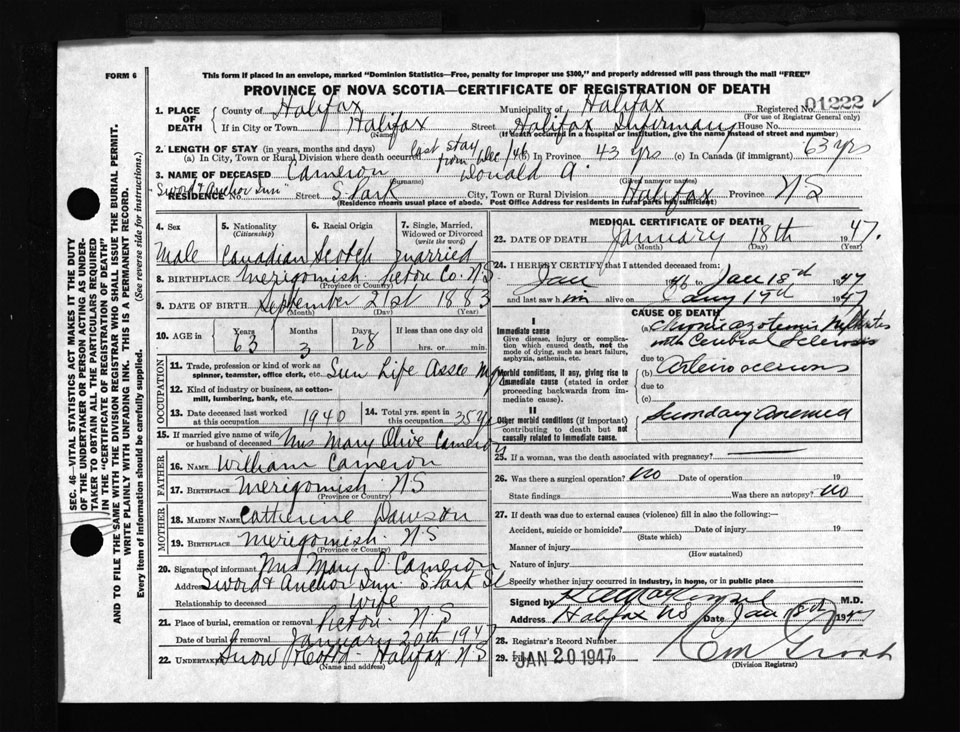 FORM 6
This form if placed in an envelope, marked "Dominion Statistics—Free, penalty for improper use $300," and properly addressed will pass through the mail "FREE"
PROVINCE OF NOVA SCOTIA—CERTIFICATE OF REGISTRATION OF DEATH
1. PLACE OF DEATH
County of Halifax Municipality of Halifax Registered No. 01222
(For use of Registrar General only)
If in City or Town Halifax Street Halifax Infirmary House No.
(Name) (If death occurred in a hospital or institution, give the name instead of street and number)
2. LENGTH OF STAY (in years, months and days)
(a) In City, Town or Rural Division where death occurred last stay from Dec/46 (b) In Province 43 yrs (c) In Canada (if immigrant) 63 yrs
3. NAME OF DECEASED Cameron Donald A.
(Surname) (Given name or names)
"Sword & Anchor Inn"
RESIDENCE No. Street S. Park City, Town or Rural Division Halifax Province N S
(Residence means usual place of abode. Post Office Address for residents in rural parts not sufficient)
4. Sex Male
5. Nationality (Citizenship) Canadian
6. Racial Origin Scotch
7. Single, Married, Widowed or Divorced (write the word) married
8. BIRTHPLACE Merigomish Pictou Co. N.S.
(Province or Country)
9. DATE OF BIRTH September 21st 1883
(Month) (Day) (Year)
10. AGE in Years 63 Months 3 Days 28 If less than one day old hrs. or min.
OCCUPATION
11. Trade, profession or kind of work as spinner, teamster, office clerk, etc. Sun Life Assce
12. Kind of industry or business, as cotton-mill, lumbering, bank, etc.
13. Date deceased last worked at this occupation 1940
14. Total yrs. spent in this occupation 35 yrs
15. If married give name of wife or husband of deceased Mrs Mary Olive Cameron
FATHER
16. NAME William Cameron
17. BIRTHPLACE Merigomish N S
(Province or Country)
MOTHER
18. MAIDEN NAME Catherine Dawson
19. BIRTHPLACE Merigomish N.S
(Province or Country)
20. Signature of informant Mrs Mary O Cameron
Address Sword & Anchor Inn. S Park St
Relationship to deceased Wife
21. Place of burial, cremation or removal Pictou N.S
Date of burial or removal January 20th 1947
22. UNDERTAKER Snow Halifax N S
(Name and address)
MEDICAL CERTIFICATE OF DEATH
23. DATE OF DEATH January 18th 1947.
(Month) (Day)
24. I HEREBY CERTIFY that I attended deceased from:
Jan to Jan 18th 1947
and last saw him alive on 1947
CAUSE OF DEATH
I
Immediate cause
Give disease, injury or complication which caused death, not the mode of dying, such as heart failure, asphyxia, asthenia, etc.
(a) with Cerebral Sclerosis
due to
Morbid conditions, if any, giving rise to immediate cause (stated in order proceeding backwards from immediate cause).
(b)
due to
(c)
II
Other morbid conditions (if important) contributing to death but not causally related to immediate cause.
Secondary Anemia
25. If a woman, was the death associated with pregnancy?
26. Was there a surgical operation? no Date of operation 19
State findings Was there an autopsy? no
27. If death was due to external causes (violence) fill in also the following:—
Accident, suicide or homicide? Date of injury 19
(State which)
Manner of injury
(How sustained)
Nature of injury
Specify whether injury occurred in industry, in home, or in public place
Signed by M.D.
Address Halifax NS Date Jan 1947
28. Registrar's Record Number
29. Filed JAN 20 1947 19
(Division Registrar)
SEC. 46—VITAL STATISTICS ACT MAKES IT THE DUTY
OF THE UNDERTAKER OR PERSON ACTING AS UNDER-
TAKER TO OBTAIN ALL THE PARTICULARS REQUIRED
IN THE "CERTIFICATE OF REGISTRATION OF DEATH"
AND TO FILE THE SAME WITH THE DIVISION REGISTRAR WHO SHALL ISSUE THE BURIAL PERMIT.
WRITE PLAINLY WITH UNFADING INK. THIS IS A PERMANENT RECORD.
Every item of information should be carefully supplied. (See reverse side for instructions.)